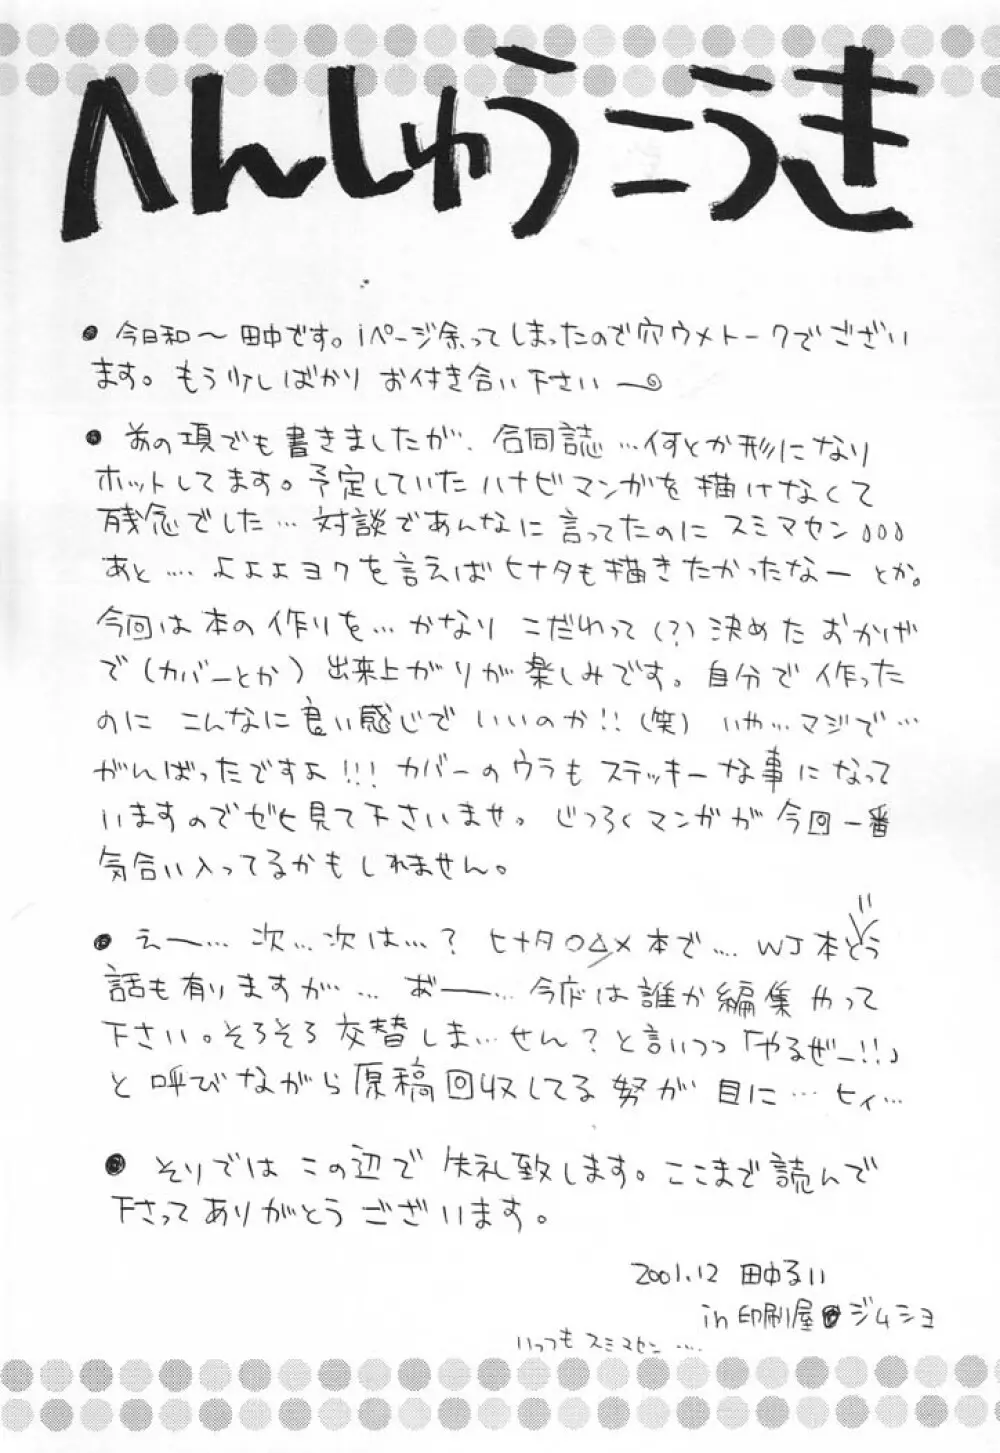 へんしゅうこうき
● 今日和〜田中です。1ページ余ってしまったので穴ウメトークでござい
ます。もう少しばかり お付き合い下さい〜
● あの項でも書きましたが、合同誌…何とか形になり
ホットしてます。予定していたハナビマンガを描けなくて
残念でした…対談であんなに言ってたのにスミマセン
あと…。よよよヨクを言えばヒナタも描きたかったなー とか。
今回は本の作りを…かなり こだわって(?)決めたおかげ
で(カバーとか)出来上がりが楽しみです。自分で作った
のに こんなに良い感じで いいのか!!(笑) いや…マジで…
がんばったですよ!!! カバーのウラも ステッキーな事になって
いますのでゼヒ見て下さいませ。じつろくマンガが今回一番
気合い入ってるかもしれません。
● えー…次…次は…? ヒナタ○△×本で…WJ本どう
話も有りますが…おー…今度は誰か編集やって
下さい。そろそろ交替しま…せん?と言いつつ「やるぜー!!」
と呼びながら原稿回収してる努が目に…ヒィ…
● そりではこの辺で失礼致します。ここまで読んで
下さってありがとうございます。
2001.12 田中るい
in 印刷屋 ジムショ
いつもスミマセン…